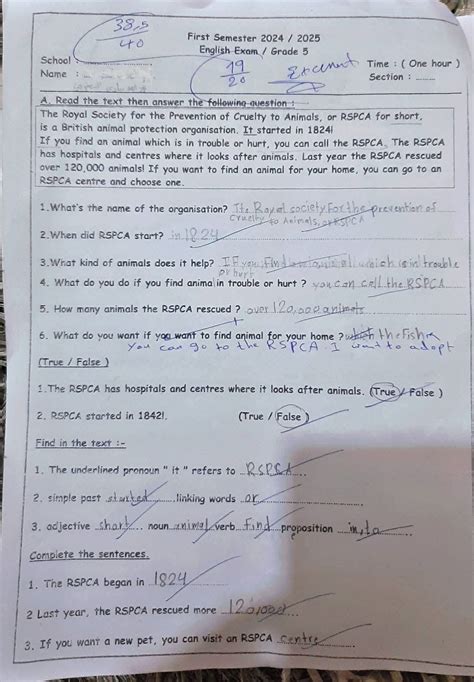 38,5
40
First Semester 2024 / 2025
English Exam / Grade 5
19
20
Excellent
School :
Time : ( One hour )
Name :
Section : ........
A. Read the text then answer the following question :
The Royal Society for the Prevention of Cruelty to Animals, or RSPCA for short,
is a British animal protection organisation. It started in 1824!
If you find an animal which is in trouble or hurt, you can call the RSPCA. The RSPCA
has hospitals and centres where it looks after animals. Last year the RSPCA rescued
over 120,000 animals! If you want to find an animal for your home, you can go to an
RSPCA centre and choose one.
1.What's the name of the organisation? The Royal society for the prevention of
Cruelty to Animals, or RSPCA
2.When did RSPCA start? in 1824
3.What kind of animals does it help? If you find animal which is in trouble
or hurt
4. What do you do if you find animal in trouble or hurt ? you can call the RSPCA
5. How many animals the RSPCA rescued ? over 120,000 animals
6. What do you want if you want to find animal for your home ? the fish
You can go to the RSPCA I want to adopt
(True / False )
1.The RSPCA has hospitals and centres where it looks after animals. (True / False )
2. RSPCA started in 1842!. (True / False )
Find in the text :-
1. The underlined pronoun " it " refers to RSPCA
2. simple past started linking words or
3. adjective short noun animal verb find preposition in, to
Complete the sentences.
1. The RSPCA began in 1824
2 Last year, the RSPCA rescued more 120,000
3. If you want a new pet, you can visit an RSPCA centre